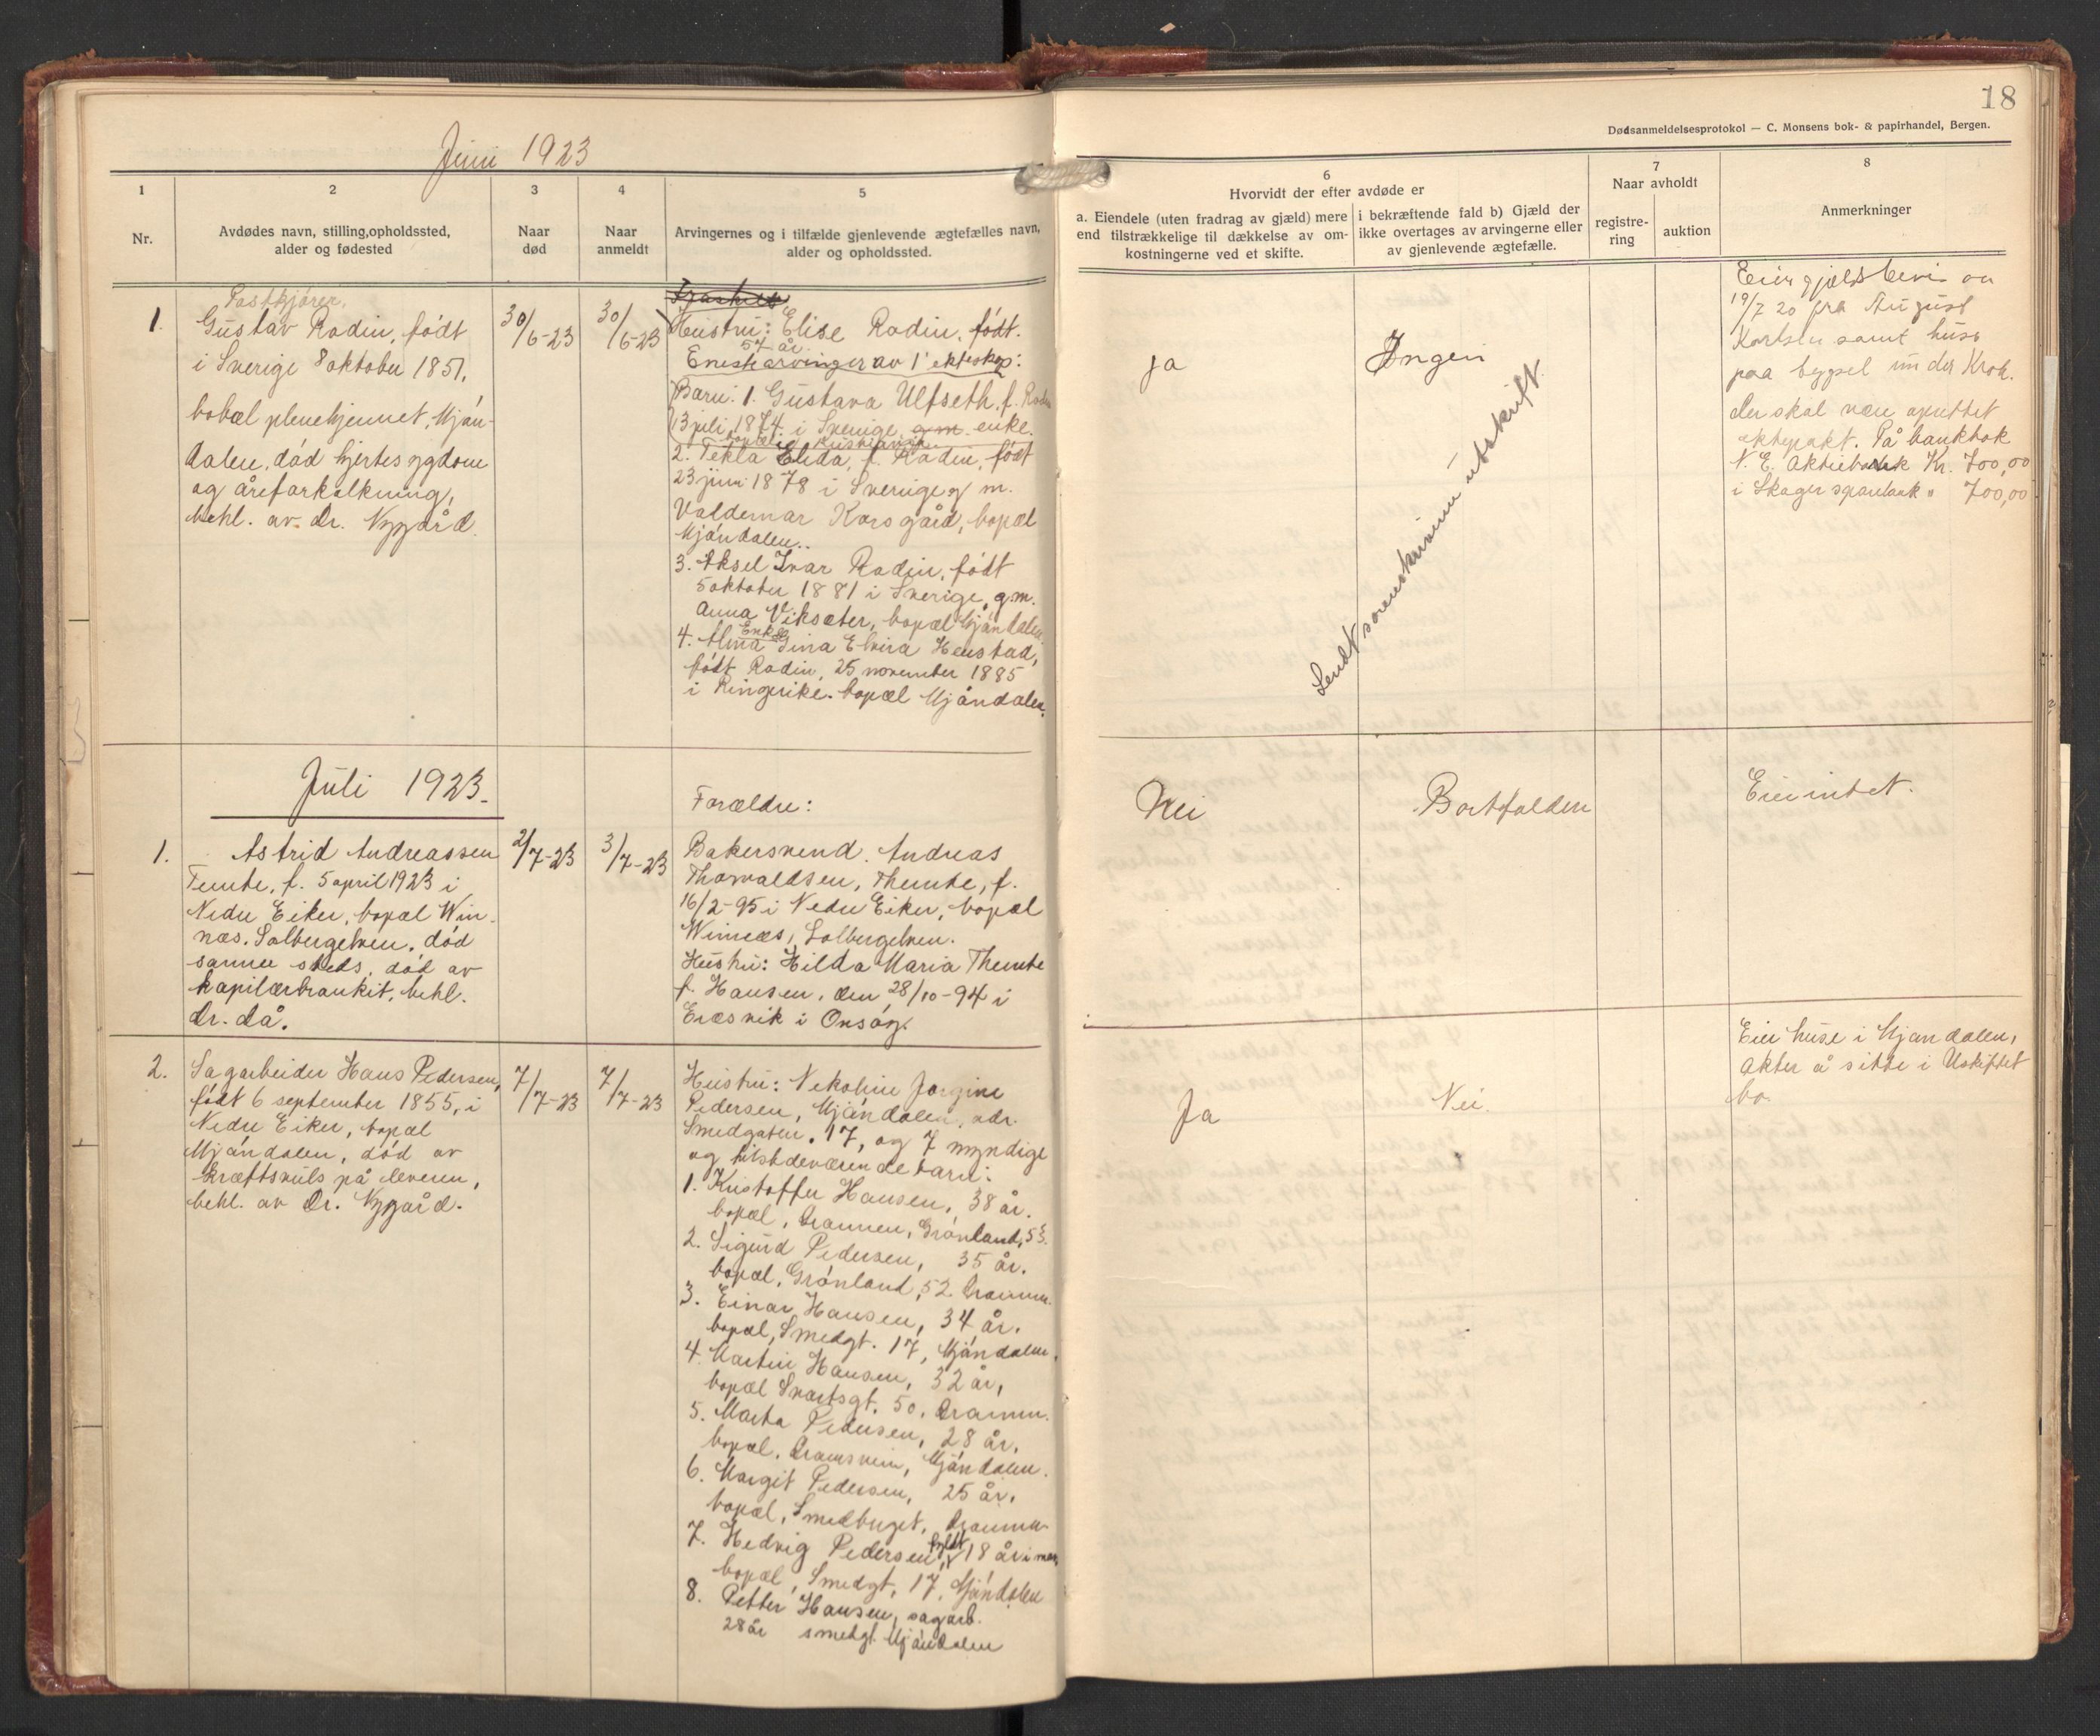 18
Dødsanmeldelsesprotokol — C. Monsens bok- & papirhandel, Bergen.
Juni 1923
1
2
3
4
5
6
7
8
Nr.
Avdødes navn, stilling, opholdssted,
alder og fødested
Naar
død
Naar
anmeldt
Arvingernes og i tilfælde gjenlevende ægtefælles navn,
alder og opholdssted.
Hvorvidt der efter avdøde er
a. Eiendele (uten fradrag av gjæld) mere
end tilstrækkelige til dækkelse av om-
kostningerne ved et skifte.
i bekræftende fald b) Gjæld der
ikke overtages av arvingerne eller
av gjenlevende ægtefælle.
Naar avholdt
registre-
ring
auktion
Anmerkninger
1.
Postkjører.
Gustav Rodin, født
i Sverige 8 oktober 1851.
bobæl plenehjemmet, Mjøn-
dalen, død hjertesygdom
og åreforkalkning,
behl. av. Dr. Nygård.
30/6-23
30/6-23
Hustru: Elise Rodin, født.
57 år.
Eneste arvinger av 1' ekteskap:
Barn: 1. Gustava Ulfseth, f. Rodin
13 juli 1874 i Sverige, g m. enke.
bopæl
2. Tekla Elida, f. Rodin, født
23 juni 1878 i Sverige g m.
Valdemar Korsgård, bopæl
Mjøndalen..
3. Aksel Ivar Rodin, født
5 oktober 1881 i Sverige, g.m.
Anna Viksæter, bopæl Mjøndalen.
Enke
4. Alma Gina Elvira Henstad,
født Rodin, 25 november 1885
i Ringerike. bopæl Mjøndalen.
ja
Ingen
Sendt sorenskriveren utskrift.
Eier gjældsbevis av
19/7 20 fra August
Karlsen samt huse
paa bygsel under Krok.
der skal være oprettet
ektepakt. På bankbok
N. E. Aktiebank Kr. 700,00
i Skoger sparebank " 700,00
Juli 1923.
1.
Astrid Andreassen
Temte, f. 5 april 1923 i
Nedre Eiker, bopæl Win-
næs. Solbergelven. død
samme steds, død av
kapilærbronkit, behl.
dr. Då.
2/7-23
3/7-23
Forældre:
Bakersvend. Andreas
Thorvaldsen, Themte, f.
16/2-95 i Nedre Eiker, bopæl
Winnæs, Solbergelven.
Hustru: Hilda Maria Themte
f. Hansen, den 28/10-94 i
i Onsøy.
Nei
Bortfalden
Eier intet.
2.
Sagarbeider Hans Pedersen,
født 6 september 1855, i
Nedre Eiker, bopæl
Mjøndalen, død av
kræftsvuls på leveren,
behl. av Dr. Nygård.
7/7-23
7/7-23
Hustru: Nekoline Jorgine
Pedersen, Mjøndalen, adr.
Smedgaten. 17, og 7 myndige
og tilstedeværende barn:
1. Kristoffer Hansen, 38 år.
bopæl, Drammen, Grønland, 53.
2. Sigurd Pedersen, 35 år.
bopæl, Grønland, 52 Drammen.
3. Einar Hansen, 34 år.
bopæl, Smedgt. 17, Mjøndalen.
4. Martin Hansen, 32 år,
bopæl Svartsgt. 50, Drammen.
5. Marta Pedersen, 28 år.
bopæl. Dramsvein, Mjøndalen.
6. Margit Pedersen, 25 år.
bopæl, Drammen
7. Hedvig Pedersen, fyldt 18 år i mars
bopæl, Smedgt, 17, Mjøndalen
8. Petter Hansen, sagarb.
28 år smedgt Mjøndalen
Ja
Nei.
Eier huse i Mjøndalen,
akter å sitte i Uskiftet
bo.